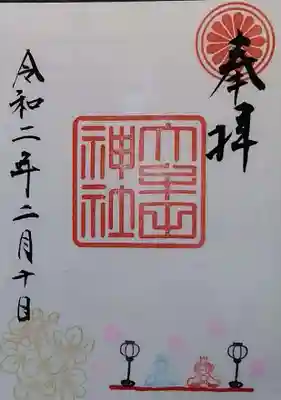 奉拝
神社
令和二年二月十日